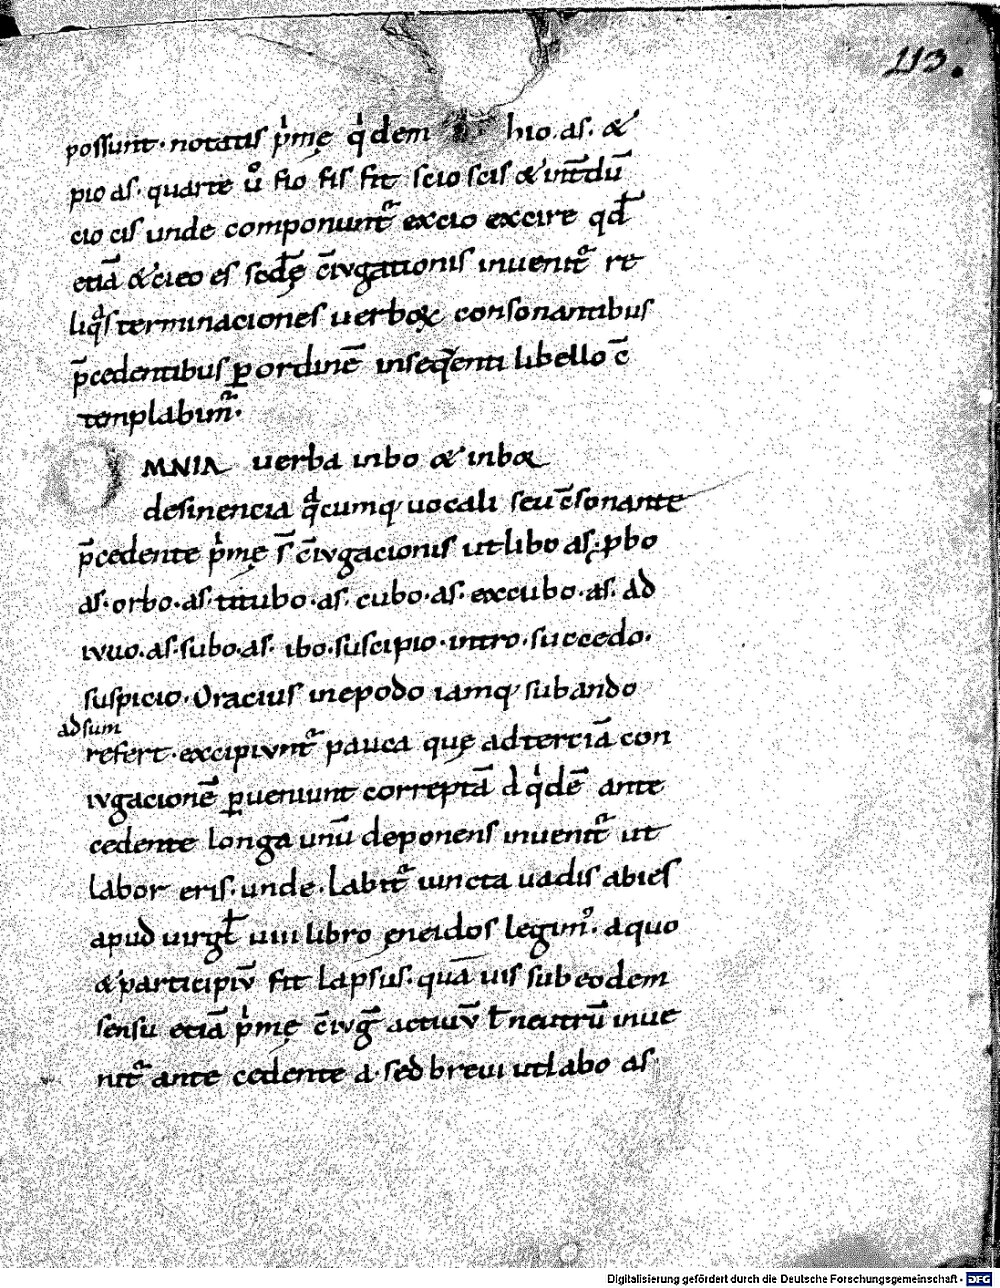 113.
possunt · notatis p̍mę q̍dem hio . as . &
pio as . quarte ů fio fis fit scio scis & int̄dū
cio cis unde componunt᷑ excio excire qđ
etiā & cieo es sedę c̄iugationis inuenit᷑ re
liqͣs terminaciones uerboꝝ consonantibus
p̄cedentibus ꝑ ordinē insequenti libello c̄
templabim᷑ .
OMNIA uerba in bo & in bor
desinencia qͣcumq; uocali seu c̄sonante
p̄cedente p̍mę s̄ c̄iugacionis ut libo as . ꝓbo
as . orbo . as . titubo . as . cubo . as . excubo . as . ad
iuuo . as . subo . as . ibo . suscipio . intro . succedo .
suspicio . Oracius in epodo iamq; subando
adsum
refert . excipiunt᷑ pauca quę ad terciā con
iugacionē ꝑueniunt correptā d q̍dē ante
cedente longa unū deponens inuenit᷑ ut
labor eris . unde . labit᷑ uincta uadis abies
apud uirgł uiii libro ęneidos legim᷒ . a quo
& participiū fit lapsus . quāuis sub eodem
sensu etiā p̍mę c̄iuḡ actiuū ł neutrū inue
nit᷑ ante cedente a . sed breui ut labo as .
Digitalisierung gefördert durch die Deutsche Forschungsgemeinschaft - DFG